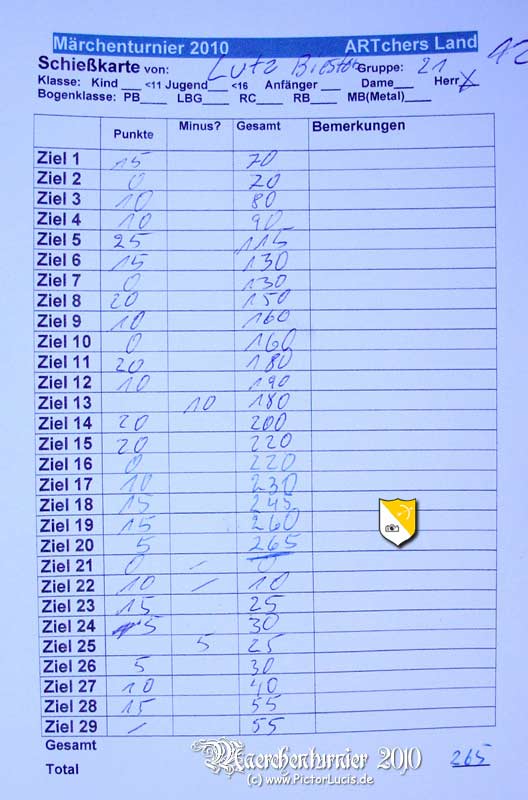 Märchenturnier 2010 ARTchers Land 12
Schießkarte von: Lutz Gruppe: 21
Klasse: Kind ___ <11 Jugend ___ <16 Anfänger ___ Dame___ Herr X
Bogenklasse: PB____ LBG____ RC____ RB____ MB(Metal)____
Punkte Minus? Gesamt Bemerkungen
Ziel 1 15 70
Ziel 2 0 70
Ziel 3 10 80
Ziel 4 10 90
Ziel 5 25 115
Ziel 6 15 130
Ziel 7 0 130
Ziel 8 20 150
Ziel 9 10 160
Ziel 10 0 160
Ziel 11 20 180
Ziel 12 10 190
Ziel 13 10 180
Ziel 14 20 200
Ziel 15 20 220
Ziel 16 0 220
Ziel 17 10 230
Ziel 18 15 245
Ziel 19 15 260
Ziel 20 5 265
Ziel 21 0 / 0
Ziel 22 10 / 10
Ziel 23 15 25
Ziel 24 5 30
Ziel 25 5 25
Ziel 26 5 30
Ziel 27 10 40
Ziel 28 15 55
Ziel 29 / 55
Gesamt
Total 265
Maerchenturnier 2010
(c) www.PictorLucis.de